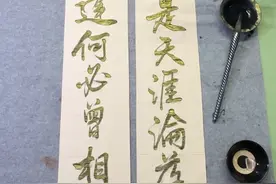 是天涯淪落
逢何必曾相